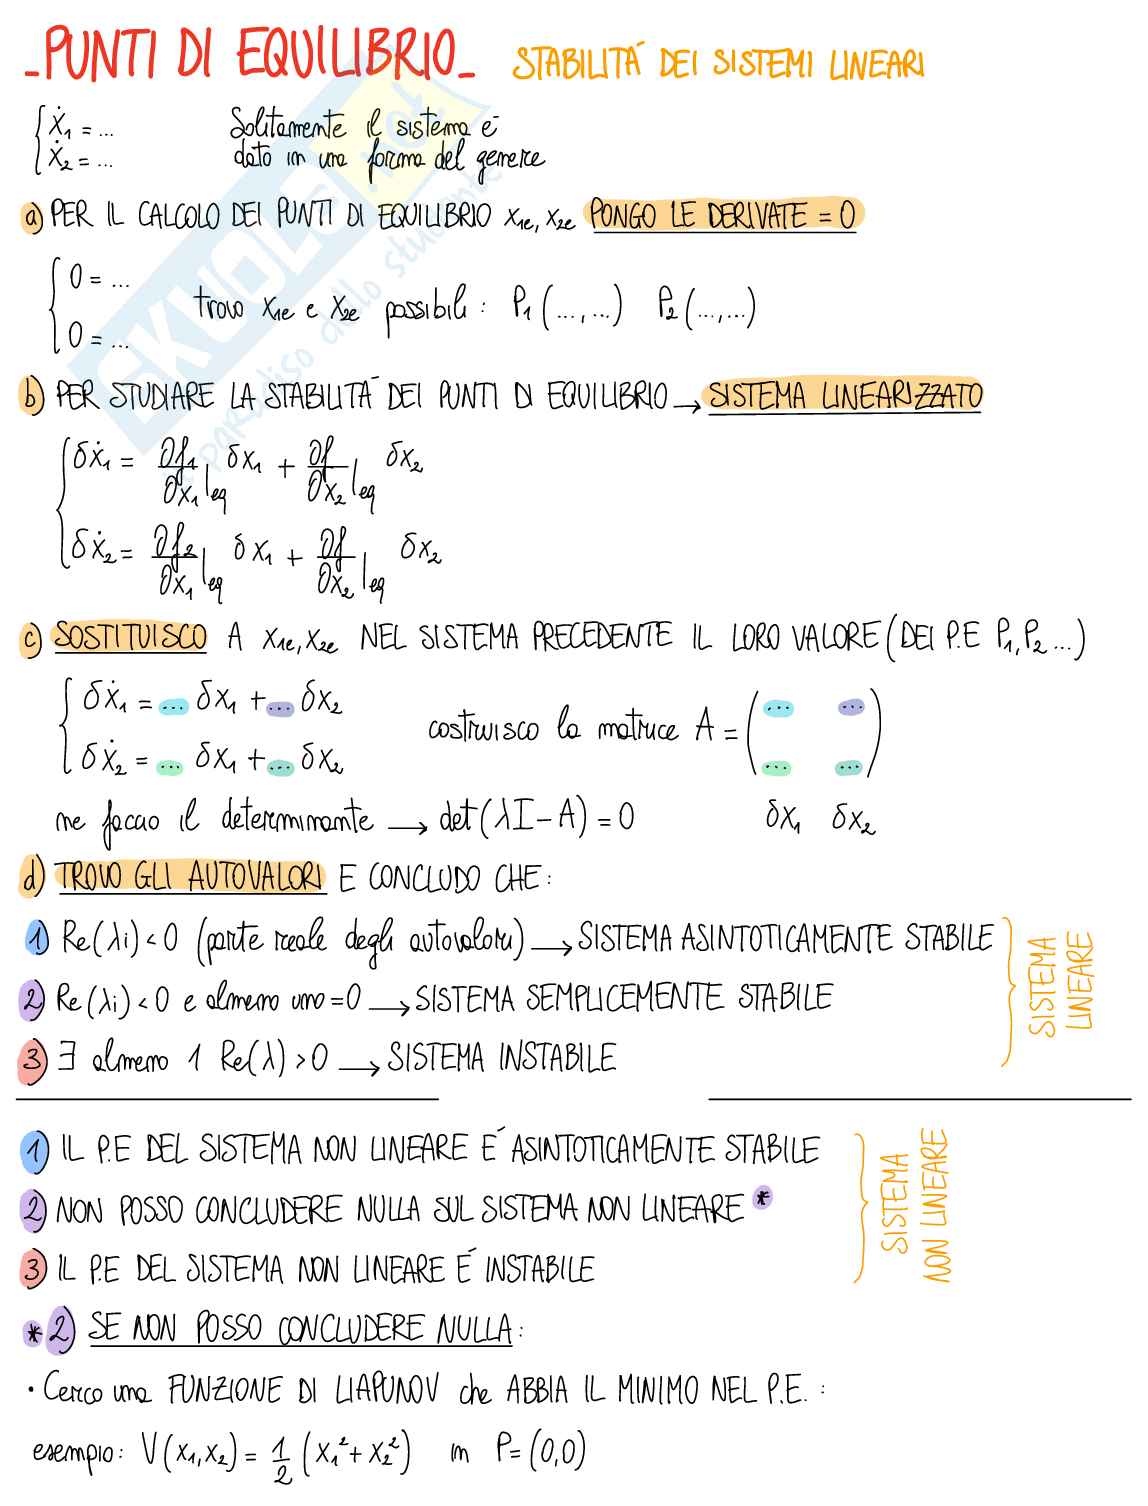 _PUNTI DI EQUILIBRIO_ STABILITÁ DEI SISTEMI LINEARI
{ẋ₁ = ... Solitamente il sistema é
{ẋ₂ = ... dato in una forma del genere
a) PER IL CALCOLO DEI PUNTI DI EQUILIBRIO x₁e, x₂e PONGO LE DERIVATE = 0
{0 = ...
trovo x₁e e x₂e possibili: P₁(...,...) P₂(...,...)
{0 = ...
b) PER STUDIARE LA STABILITÁ DEI PUNTI DI EQUILIBRIO → SISTEMA LINEARIZZATO
{δẋ₁ = ∂f₁/∂x₁|eq δx₁ + ∂f/∂x₂|eq δx₂
{δẋ₂ = ∂f₂/∂x₁|eq δx₁ + ∂f/∂x₂|eq δx₂
c) SOSTITUISCO A x₁e, x₂e NEL SISTEMA PRECEDENTE IL LORO VALORE (DEI P.E P₁, P₂ ...)
{δẋ₁ = ... δx₁ + ... δx₂
costruisco la matrice A = (... ... ... ...)
{δẋ₂ = ... δx₁ + ... δx₂
ne faccio il determinante → det(λI - A) = 0 δx₁ δx₂
d) TROVO GLI AUTOVALORI E CONCLUDO CHE:
1) Re(λi) < 0 (parte reale degli autovalori) → SISTEMA ASINTOTICAMENTE STABILE
2) Re(λi) < 0 e almeno uno = 0 → SISTEMA SEMPLICEMENTE STABILE
3) ∃ almeno 1 Re(λ) > 0 → SISTEMA INSTABILE
SISTEMA
LINEARE
1) IL P.E DEL SISTEMA NON LINEARE É ASINTOTICAMENTE STABILE
2) NON POSSO CONCLUDERE NULLA SUL SISTEMA NON LINEARE *
3) IL P.E DEL SISTEMA NON LINEARE É INSTABILE
SISTEMA
NON LINEARE
* 2) SE NON POSSO CONCLUDERE NULLA:
• Cerco una FUNZIONE DI LIAPUNOV che ABBIA IL MINIMO NEL P.E. :
esempio: V(x₁,x₂) = 1/2 (x₁² + x₂²) in P = (0,0)
SKUOLA.net
il paradiso dello studente